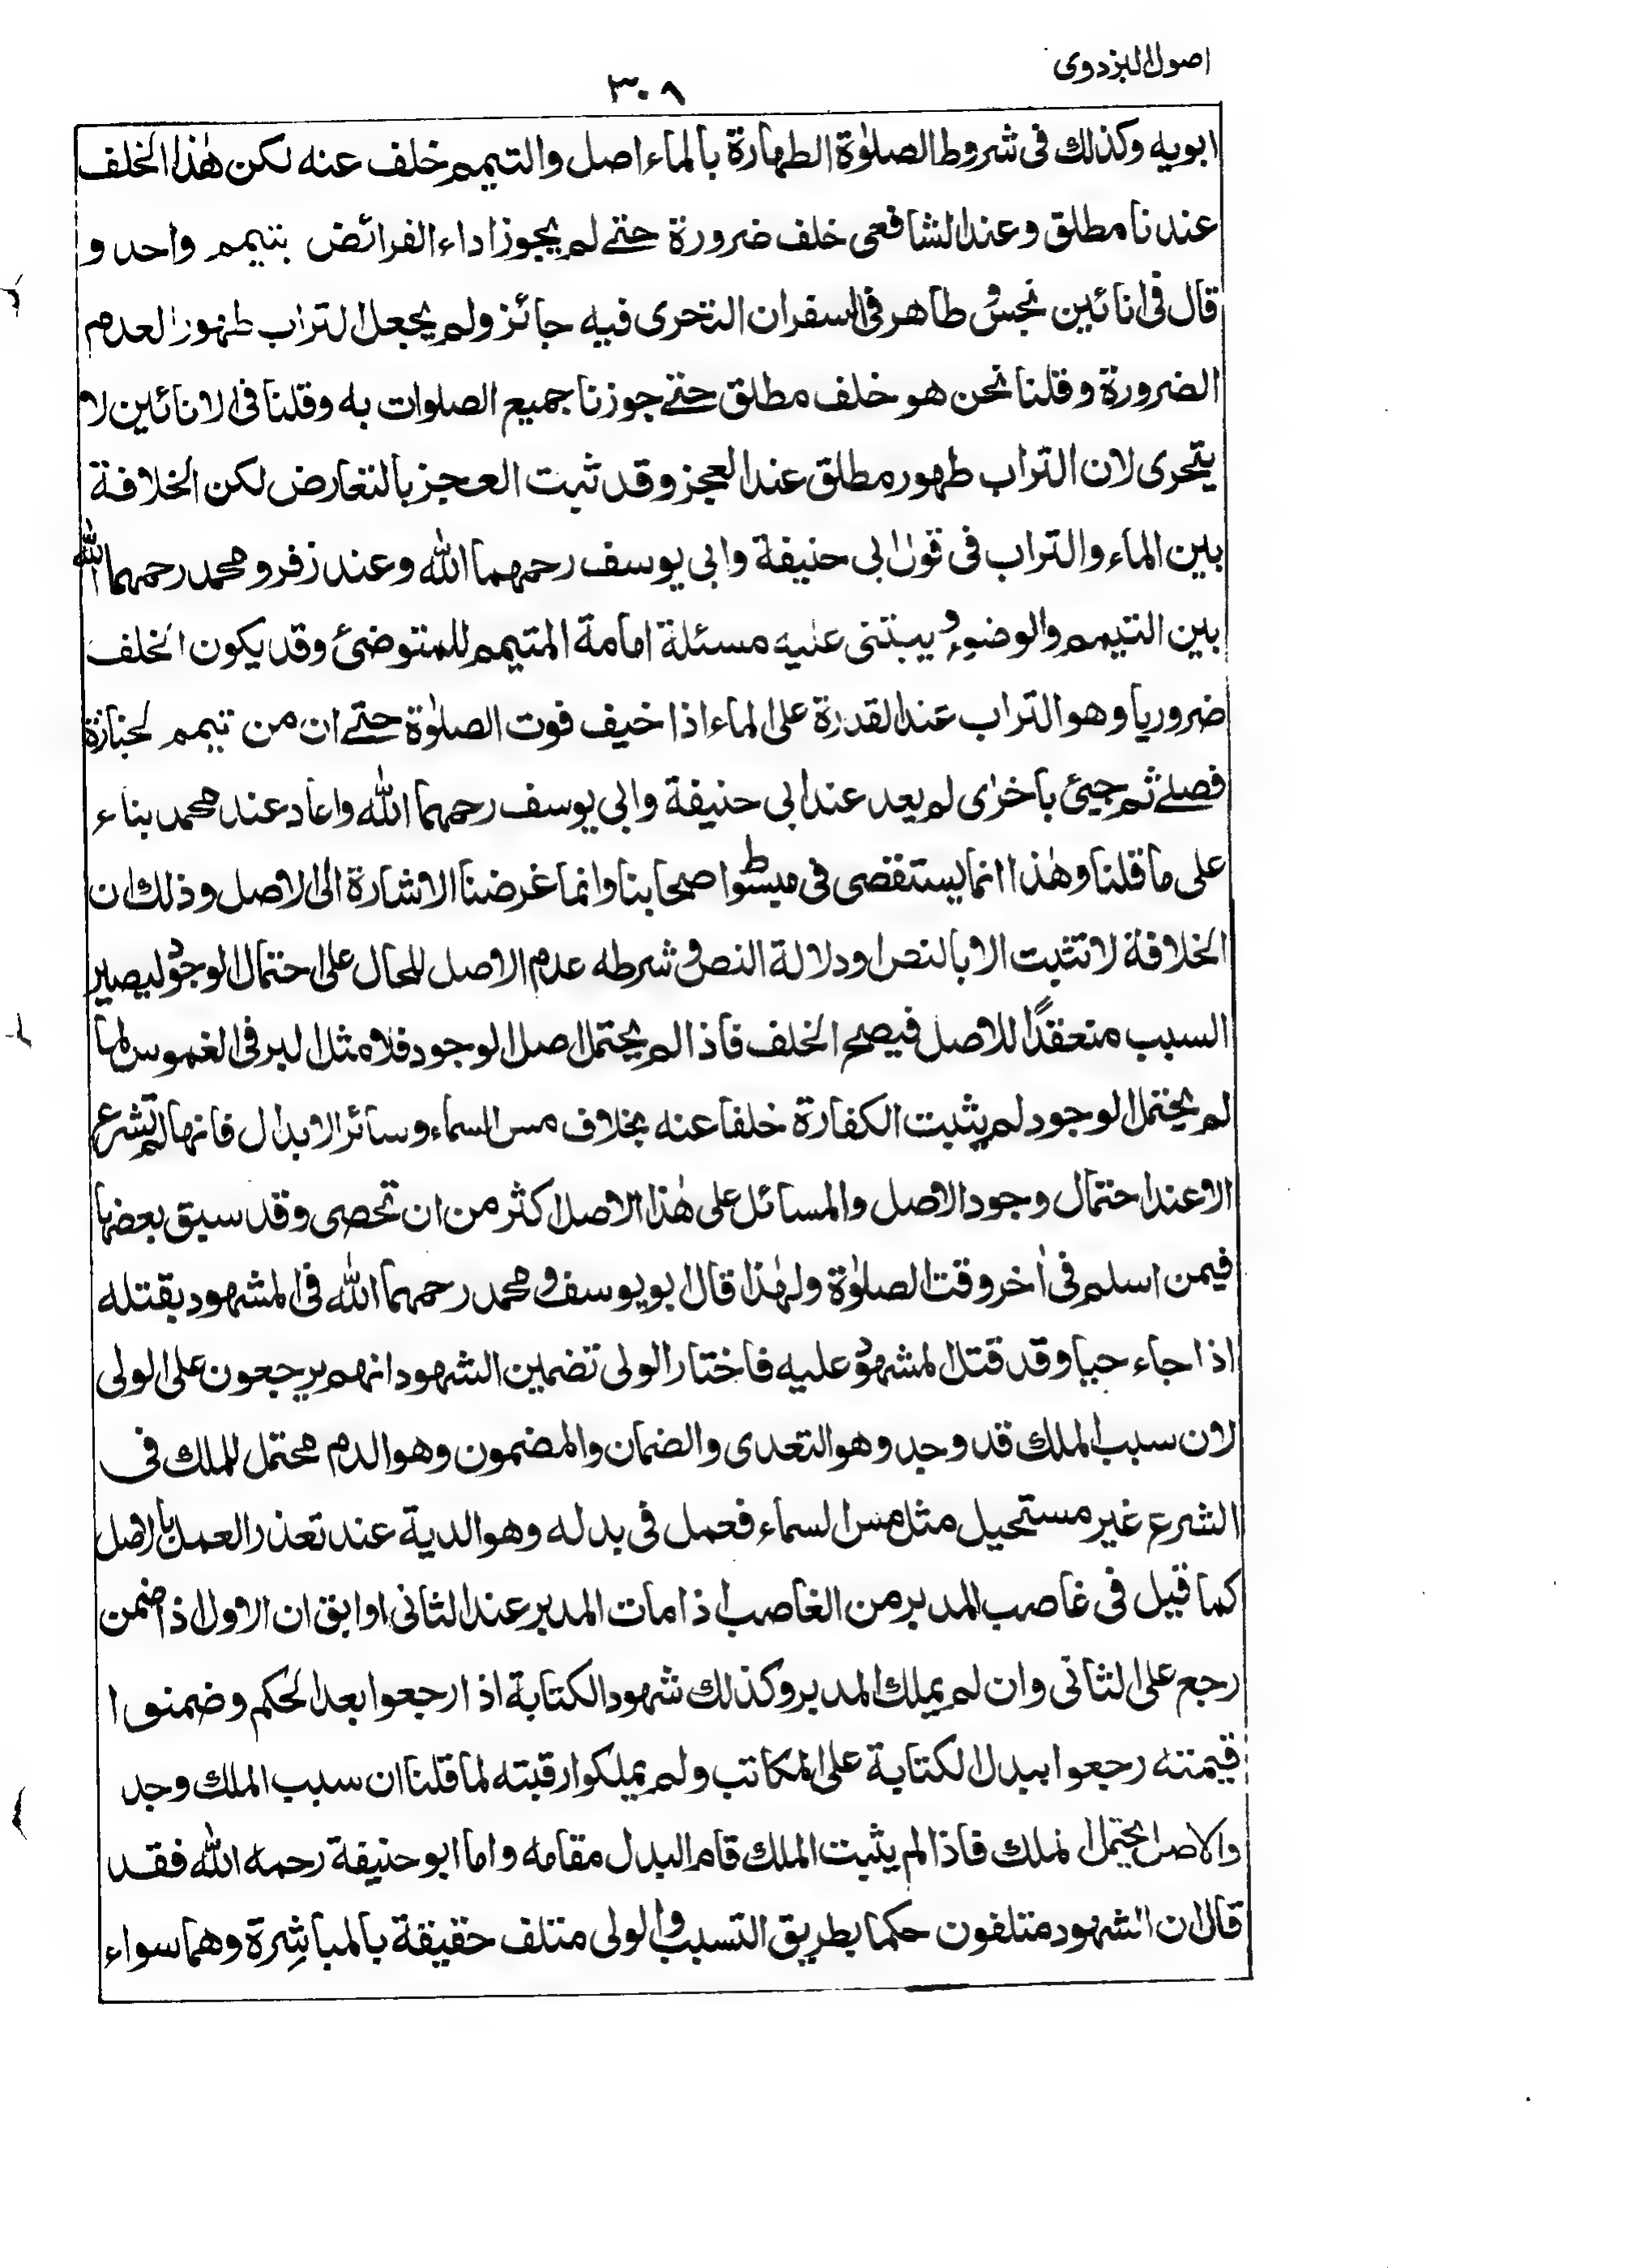 اصول البزدوی
۳۰۸
ابویه وکذلك فی شروط الصلوٰة الطهارة بالماء اصل والتیمم خلف عنه لکن هٰذا الخلف
عندنا مطلق وعند الشافعی خلف ضرورة حتے لم یجوز اداء الفرائض بتیمم واحد و
قال فی انائین نجس و طاهر فی السفر ان التحری فیه جائز ولم یجعل التراب طهورا لعدم
الضرورة وقلنا نحن هو خلف مطلق حتے جوزنا جمیع الصلوات به وقلنا فی الانائین لا
یتحری لان التراب طهور مطلق عند العجز وقد ثبت العجز بالتعارض لکن الخلافة
بین الماء والتراب فی قول ابی حنیفة وابی یوسف رحمهما الله وعند زفر ومحمد رحمهما الله
بین التیمم والوضوء و یبتنی علیه مسئلة امامة المتیمم للمتوضئ وقد یکون الخلف
ضروریا وهو التراب عند القدرة علی الماء اذا خیف فوت الصلوٰة حتے ان من تیمم لجنازة
فصلے ثم جیئ باخرٰی لم یعد عند ابی حنیفة وابی یوسف رحمهما الله واعاد عند محمد بناء
علی ما قلنا وهٰذا انما یستقصی فی مبسوط اصحابنا وانما غرضنا الاشارة الی الاصل وذلك ان
الخلافة لا تثبت الا بالنص او دلالة النص و شرطه عدم الاصل للحال علی احتمال الوجود لیصیر
السبب منعقدًا للاصل فیصح الخلف فاذا لم یحتمل اصل الوجود فلا مثل البر فی الغموس لما
لم یحتمل الوجود لم یثبت الکفارة خلفا عنه بخلاف مس السماء وسائر الابدال فانها لم تشرع
الا عند احتمال وجود الاصل والمسائل علی هٰذا الاصل اکثر من ان تحصی وقد سبق بعضها
فیمن اسلم فی اٰخر وقت الصلوٰة ولهٰذا قال ابو یوسف و محمد رحمهما الله فی المشهود بقتله
اذا جاء حیا وقد قتل المشهود علیه فاختار الولی تضمین الشهود انهم یرجعون علی الولی
لان سبب الملك قد وجد وهو التعدی والضمان والمضمون وهو الدم محتمل للملك فی
الشرع غیر مستحیل مثل مس السماء فعمل فی بدله وهو الدیة عند تعذر العمل بالاصل
کما قیل فی غاصب المدبر من الغاصب اذا مات المدبر عند الثانی او ابق ان الاول اذا ضمن
رجع علی الثانی وان لم یملك المدبر وکذلك شهود الکتابة اذا رجعوا بعد الحکم وضمنوا
قیمته رجعوا ببدل الکتابة علی المکاتب ولم یملکوا رقبته لما قلنا ان سبب الملك وجد
والاصل یحتمل تملك فاذا لم یثبت الملك قام البدل مقامه واما ابو حنیفة رحمه الله فقد
قال ان الشهود متلفون حکما بطریق التسبب والولی متلف حقیقة بالمباشرة وهما سواء